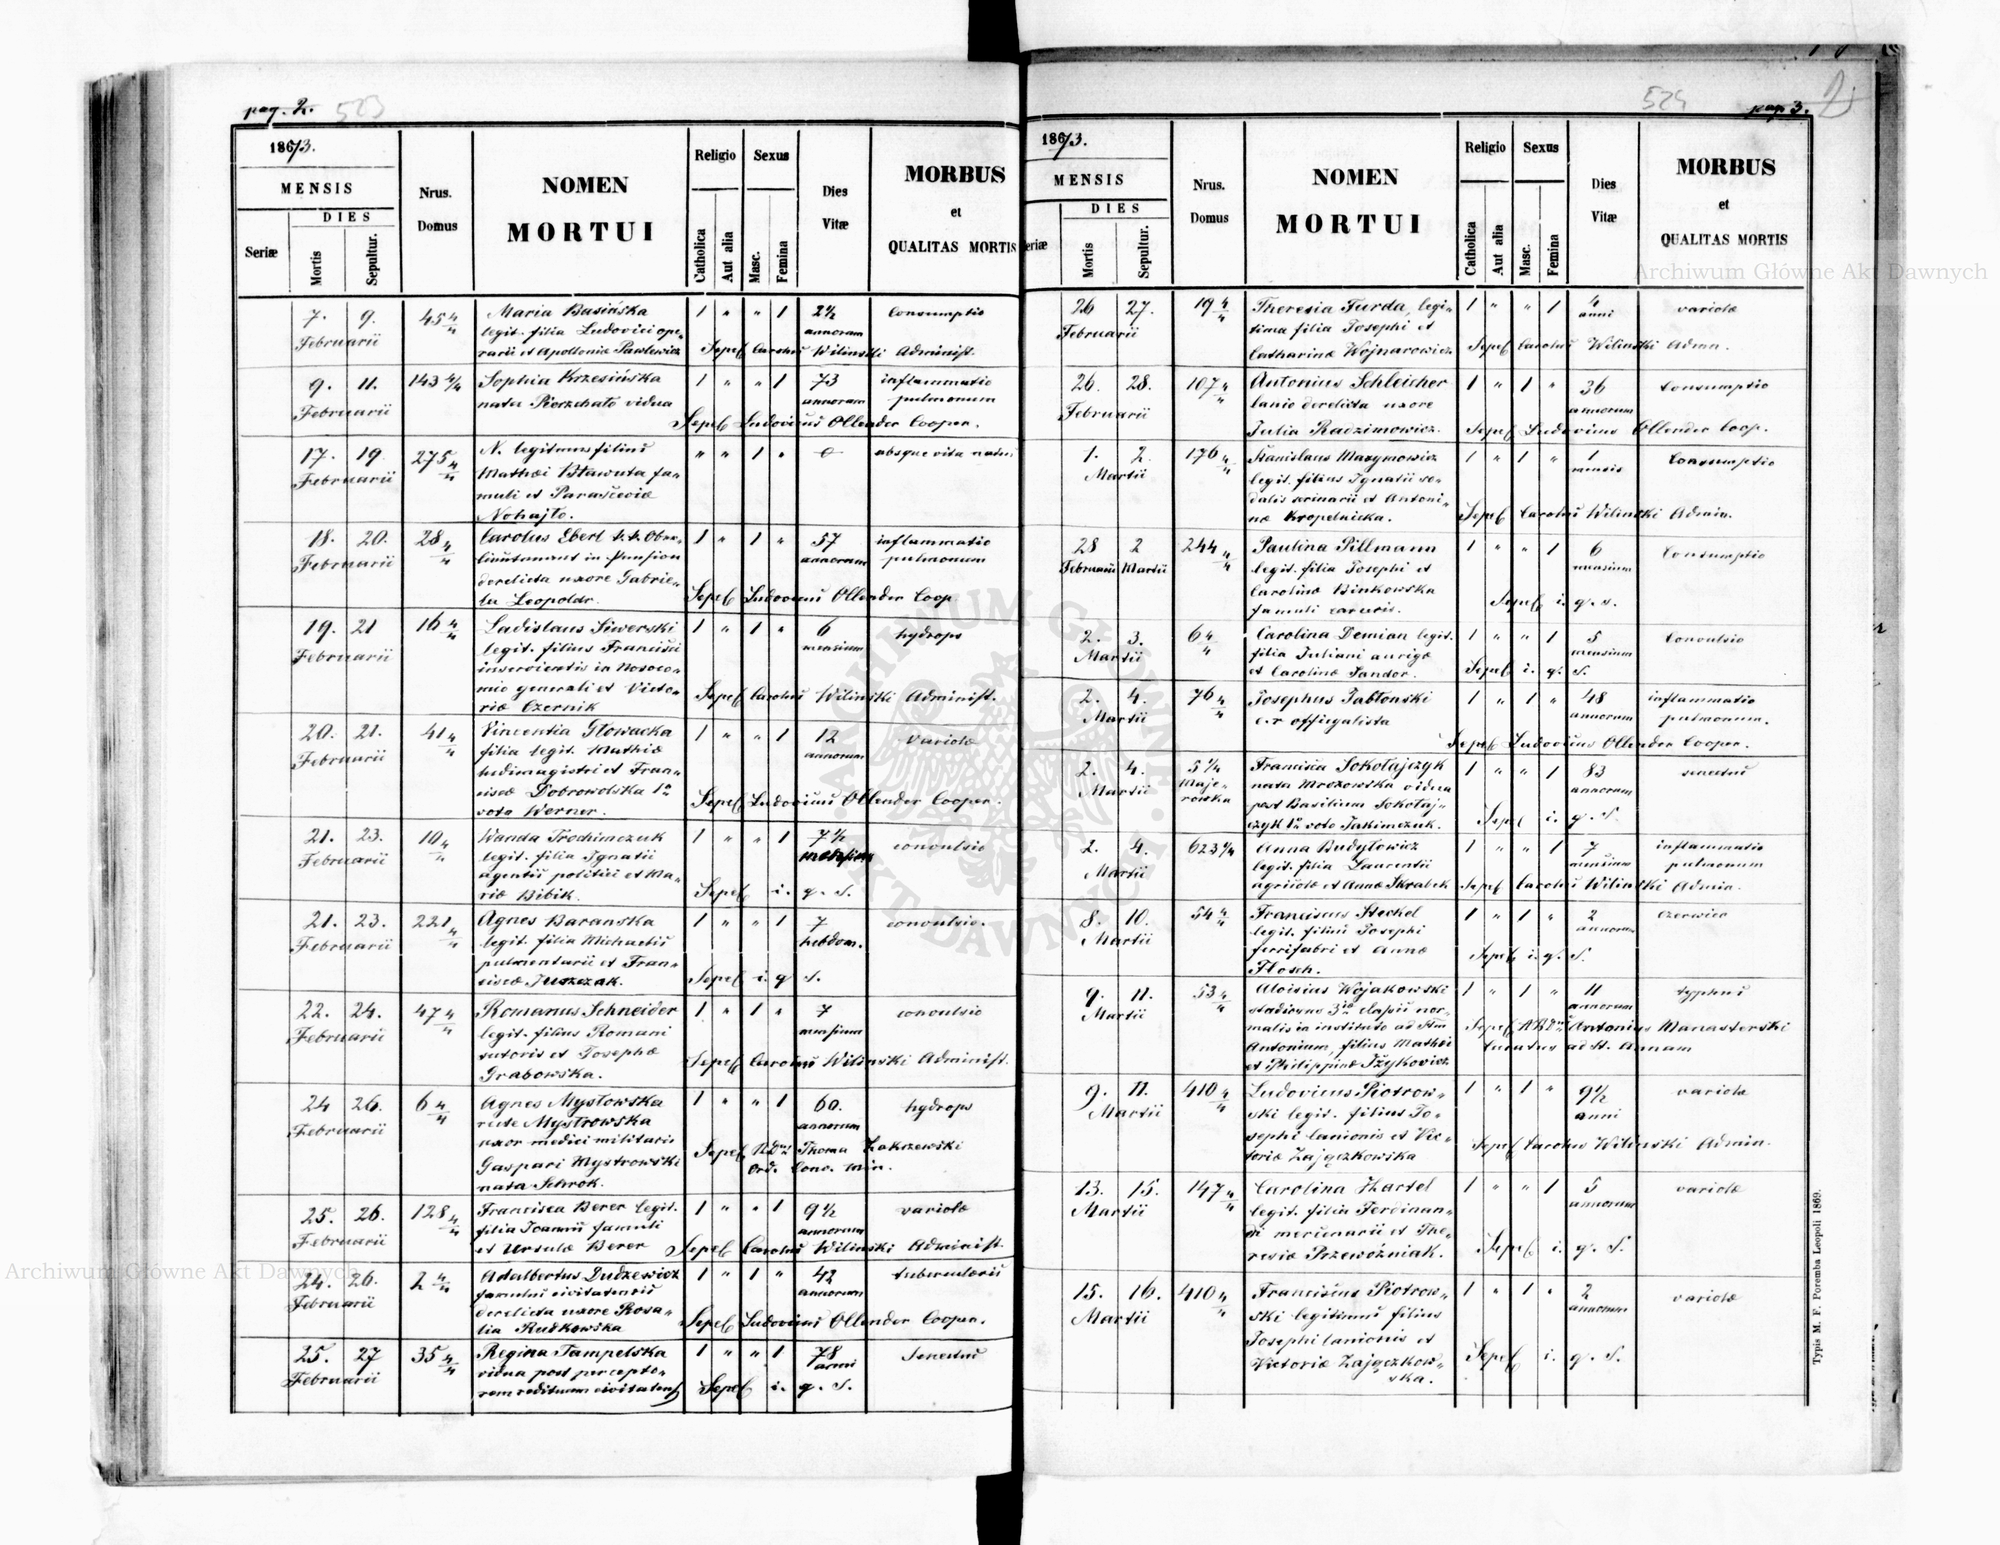 pag. 2. 523
1873.
MENSIS
DIES
Seriæ
Mortis
Sepultur.
Nrus.
Domus
NOMEN
MORTUI
Religio
Catholica
Aut alia
Sexus
Masc.
Femina
Dies
Vitæ
MORBUS
et
QUALITAS MORTIS
7. 9. 45 4/4 Maria Basińska 1 " " 1 2½ Consumptio
Februarii legit. filia Ludovici ope- annorum
rarii et Apolloniæ Pawlewicz Sepel Carolus Wilinski Administ.
9. 11. 143 4/4 Sophia Krzesińska 1 " " 1 73 inflammatio
Februarii nata Pierzchało vidua annorum pulmonum
Sepel Ludovicus Ollender Cooper.
17. 19. 275 4/4 N. legitimus filius " " 1 " 0 absque vita natus
Februarii Mathæi Bławuta fa-
muli et Parasceviæ
Nohajto.
18. 20. 28 4/4 Carolus Ebert k.k. Ober- 1 " 1 " 57 inflammatio
Februarii lieutenant in Pension annorum pulmonum
derelicta uxore Gabrie-
la Leopoldr. Sepel Ludovicus Ollender Coop
19. 21 16 4/4 Ladislaus Siwerski 1 " 1 " 6 hydrops
Februarii legit. filius Francisci mensium
inservientis in Nosoco-
mio generali et Victo- Sepel Carolus Wilinski Administ.
riæ Czernik
20. 21. 41 4/4 Vincentia Głowacka 1 " " 1 12 Variolæ
Februarii filia legit. Mathiæ annorum
ludimagistri et Fran-
ciscæ Dobrowolska 1o Sepel Ludovicus Ollender Cooper.
voto Werner.
21. 23. 10 4/4 Wanda Trochimczuk 1 " " 1 7½ convulsio
Februarii legit. filia Ignatii
agentis politici et Ma-
riæ Bibik. Sepel i. q. S.
21. 23. 221 4/4 Agnes Baranska 1 " " 1 7 convulsio.
Februarii legit. filia Michaelis hebdom.
pulmentarii et Fran-
ciscæ Juszczak. Sepel i. q S.
22. 24. 47 4/4 Romanus Schneider 1 " 1 " 7 convulsio
Februarii legit. filius Romani mensium
sutoris et Josephæ
Grabowska. Sepel Carolus Wilinski Administ.
24 26. 6 4/4 Agnes Mysłowska 1 " " 1 60. hydrops
Februarii recte Mystrowska annorum
uxor medici militaris
Gaspari Mystrowski Sepel. R.Dus Thoma Zakrzewski
nata Schrök. Ord. Conv. Min.
25. 26. 128 4/4 Francisca Berer legit. 1 " " 1 9½ variolæ
Februarii filia Joannis famuli annorum
et Ursulæ Berer Sepel Carolus Wilinski Administ.
24. 26. 2 4/4 Adalbertus Dudzewicz 1 " 1 " 42 tuberculosis
Februarii famulus civitatensis annorum
derelicta uxore Rosa-
lia Rudkowska Sepel Ludovicus Ollender Cooper.
25. 27 35 4/4 Regina Tampelska 1 " " 1 78 Senectus
Februarii vidua post percepto- anni
rem redituum civitatens Sepel i. q. S.
524 pag. 3.
1873.
MENSIS
DIES
Seriæ
Mortis
Sepultur.
Nrus.
Domus
NOMEN
MORTUI
Religio
Catholica
Aut alia
Sexus
Masc.
Femina
Dies
Vitæ
MORBUS
et
QUALITAS MORTIS
26 27. 19 4/4 Theresia Furda, legi- 1 " " 1 4 variolæ
Februarii tima filia Josephi et anni
Catharinæ Wojnarowicz Sepel Carolus Wilinski Admn.
26. 28. 107 4/4 Antonius Schleicher 1 " 1 " 36 Consumptio
Februarii lanio derelicta uxore annorum
Julia Radzimowicz. Sepel Ludovicus Ollender Coop.
1. 2. 176 4/4 Stanislaus Mazymowicz 1 " 1 " 1 Consumptio
Martii legit. filius Ignatii so- mensis
dalis scrinarii et Antoni-
næ Kropelnicka. Sepel Carolus Wilinski Admin.
28 2 244 4/4 Paulina Pillmann 1 " " 1 6 Consumptio
Februarii Martii legit. filia Josephi et mensium
Carolinæ Binkowska
famuli Sepel i. q. S.
2. 3. 6 4/4 Carolina Demian legit. 1 " " 1 5 Convulsio
Martii filia Juliani aurigæ mensium
et Carolinæ Sandor. Sepel i. q. S.
2. 4. 76 4/4 Josephus Jabłonski 1 " 1 " 48 inflammatio
Martii c.r officialista annorum pulmonum.
Sepel Ludovicus Ollender Cooper.
2. 4. 5 1/4 Francisca Sokołajczyk 1 " " 1 83 senectus
Martii Maje- nata Mrozowska vidua annorum
rowska post Basilium Sokołaj-
czyk 1o voto Jakimczuk. Sepel i. q. S.
2. 4. 623 4/4 Anna Budyłowicz 1 " " 1 7 inflammatio
Martii legit. filia Laurentii mensium pulmonum
agricolæ et Annæ Skrabek Sepel Carolus Wilinski Admin.
8. 10. 54 4/4 Franciscus Steckel 1 " 1 " 2 Czerwica
Martii legit. filius Josephi annorum
ferrifabri et Annæ
Flosch. Sepel i. q. S.
9. 11. 53 4/4 Aloisius Wojakowski 1 " 1 " 11 typhus
Martii studiosus 3æ classis nor- annorum
malis in instituto ad Stm Sepel A.R.Dus Antonius Manasterski
Antonium, filius Mathæi Curatus ad St. Annam
et Philippinæ Iżykowicz
9. 11. 410 4/4 Ludovicus Piotrow- 1 " 1 " 9½ variolæ
Martii ski legit. filius Jo- anni
sephi lanionis et Vic-
toriæ Zajączkowska Sepel Carolus Wilinski Admin.
13. 15. 147 4/4 Carolina Hartel 1 " " 1 5 variolæ
Martii legit. filia Ferdinan- annorum
di mercenarii et The-
resiæ Przewoźniak. Sepel i. q. S.
15. 16. 410 4/4 Franciscus Piotrow- 1 " 1 " 2 variolæ
Martii ski legitimus filius annorum
Josephi lanionis et
Victoriæ Zajączkow- Sepel i. q. S.
ska.
Typis M. F. Poremba Leopoli 1869.
Archiwum Główne Akt Dawnych
Archiwum Główne Akt Dawnych
ARCHIWUM GŁÓWNE AKT DAWNYCH